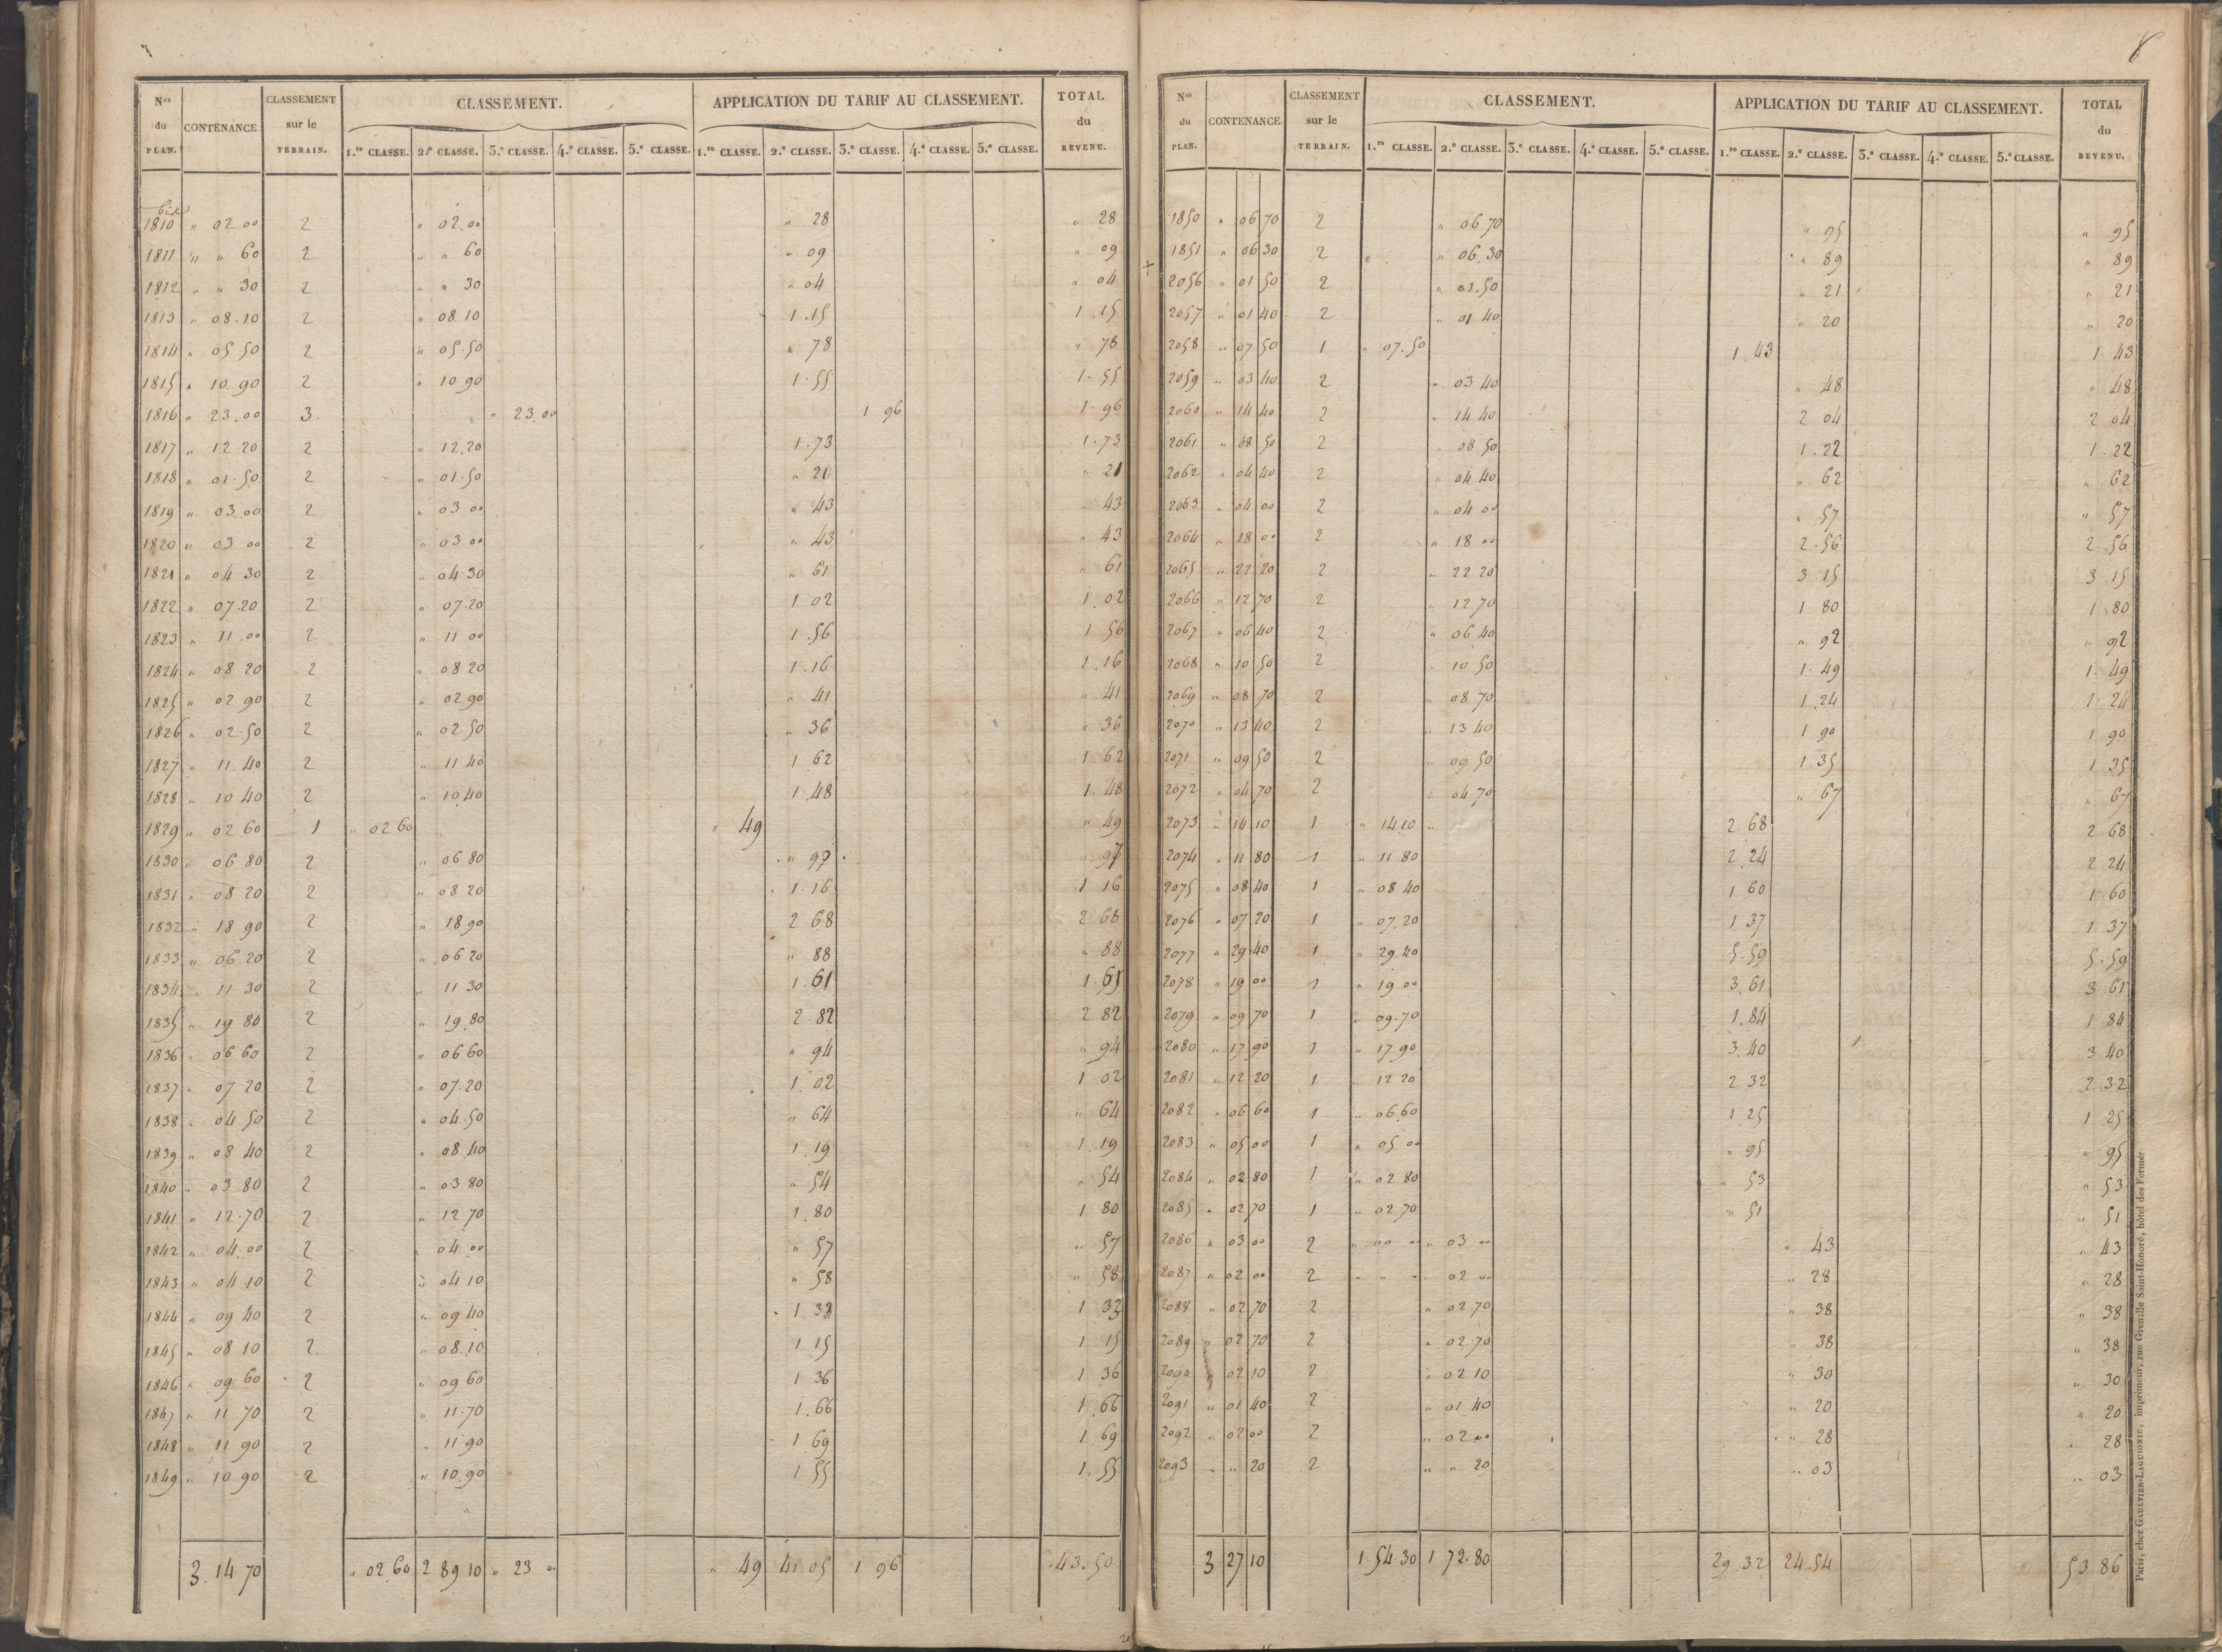 8
N.os du PLAN. CONTENANCE. CLASSEMENT sur le TERRAIN. CLASSEMENT. APPLICATION DU TARIF AU CLASSEMENT. TOTAL du REVENU.
1.re CLASSE. 2.e CLASSE. 3.e CLASSE. 4.e CLASSE. 5.e CLASSE. 1.re CLASSE. 2.e CLASSE. 3.e CLASSE. 4.e CLASSE. 5.e CLASSE.
bis
1810 " 02 00 2 " 02.00 " 28 " 28
1811 " " 60 2 " " 60 " 09 " 09
1812 " " 30 2 " " 30 " 04 " 04
1813 " 08.10 2 " 08 10 1.15 1.15
1814 " 05 50 2 " 05.50 " 78 " 78
1815 " 10 90 2 " 10 90 1.55 1.55
1816 " 23.00 3 " 23.00 1 96 1.96
1817 " 12 20 2 " 12.20 1.73 1.73
1818 " 01.50 2 " 01.50 " 21 " 21
1819 " 03 00 2 " 03 00 " 43 " 43
1820 " 03 00 2 " 03 00 " 43 " 43
1821 " 04 30 2 " 04 30 " 61 " 61
1822 " 07.20 2 " 07.20 1 02 1.02
1823 " 11.00 2 " 11 00 1.56 1 56
1824 " 08 20 2 " 08 20 1.16 1.16
1825 " 02 90 2 " 02 90 " 41 " 41
1826 " 02.50 2 " 02 50 " 36 " 36
1827 " 11 40 2 " 11 40 1 62 1 62
1828 " 10 40 2 " 10 40 1.48 1.48
1829 " 02 60 1 " 02 60 " 49 " 49
1830 " 06 80 2 " 06 80 " 97 " 97
1831 " 08 20 2 " 08 20 1.16 1 16
1832 " 18 90 2 " 18 90 2 68 2 68
1833 " 06 20 2 " 06 20 " 88 " 88
1834 " 11 30 2 " 11 30 1.61 1.61
1835 " 19 80 2 " 19.80 2.82 2 82
1836 " 06 60 2 " 06 60 " 94 " 94
1837 " 07 20 2 " 07.20 1.02 1 02
1838 " 04 50 2 " 04.50 " 64 " 64
1839 " 08 40 2 " 08.40 1.19 1.19
1840 " 03 80 2 " 03 80 " 54 " 54
1841 " 12.70 2 " 12 70 1.80 1 80
1842 " 04.00 2 " 04 00 " 57 " 57
1843 " 04.10 2 " 04 10 " 58 " 58
1844 " 09 40 2 " 09 40 1 33 1 33
1845 " 08 10 2 " 08.10 1 15 1 15
1846 " 09 60 2 " 09 60 1 36 1 36
1847 " 11 70 2 " 11.70 1.66 1.66
1848 " 11 90 2 " 11 90 1 69 1.69
1849 " 10 90 2 " 10.90 1 55 1.55
3.14 70 " 02 60 2 89 10 " 23 " " 49 41.05 1 96 43.50
N.os du PLAN. CONTENANCE. CLASSEMENT sur le TERRAIN. CLASSEMENT. APPLICATION DU TARIF AU CLASSEMENT. TOTAL du REVENU.
1.re CLASSE. 2.e CLASSE. 3.e CLASSE. 4.e CLASSE. 5.e CLASSE. 1.re CLASSE. 2.e CLASSE. 3.e CLASSE. 4.e CLASSE. 5.e CLASSE.
1850 " 06 70 2 " 06 70 " 95 " 95
1851 " 06 30 2 " 06.30 " 89 " 89
+ 2056 " 01 50 2 " 01.50 " 21 " 21
2057 " 01 40 2 " 01 40 " 20 " 20
2058 " 07 50 1 " 07.50 1.43 1.43
2059 " 03 40 2 " 03 40 " 48 " 48
2060 " 14 40 2 " 14 40 2 04 2 04
2061 " 08 50 2 " 08 50 1.22 1.22
2062 " 04 40 2 " 04 40 " 62 " 62
2063 " 04 00 2 " 04 00 " 57 " 57
2064 " 18 00 2 " 18 00 2.56 2.56
2065 " 22 20 2 " 22 20 3.15 3.15
2066 " 12 70 2 " 12 70 1 80 1 80
2067 " 06 40 2 " 06 40 " 92 " 92
2068 " 10 50 2 " 10 50 1.49 1.49
2069 " 08 70 2 " 08 70 1.24 1.24
2070 " 13 40 2 " 13 40 1 90 1 90
2071 " 09 50 2 " 09 50 1.35 1 35
2072 " 04 70 2 " 04 70 " 67 " 67
2073 " 14 10 1 " 14 10 " 2 68 2 68
2074 " 11 80 1 " 11 80 2.24 2 24
2075 " 08 40 1 " 08 40 1 60 1 60
2076 " 07 20 1 " 07.20 1 37 1 37
2077 " 29 40 1 " 29 40 5.59 5.59
2078 " 19 00 1 " 19 00 3.61 3 61
2079 " 09 70 1 " 09.70 1.84 1 84
2080 " 17 90 1 " 17 90 3.40 3 40
2081 " 12 20 1 " 12 20 2 32 2.32
2082 " 06 60 1 " 06 60 1 25 1 25
2083 " 05 00 1 " 05 00 " 95 " 95
2084 " 02 80 1 " 02 80 " 53 " 53
2085 " 02 70 1 " 02.70 " 51 " 51
2086 " 03 00 2 " 00 00 " 03 00 " 43 " 43
2087 " 02 00 2 " " " 02 00 " 28 " 28
2088 " 02 70 2 " 02.70 " 38 " 38
2089 " 02 70 2 " 02.70 " 38 " 38
2090 " 02 10 2 " 02 10 " 30 " 30
2091 " 01 40 2 " 01 40 " 20 " 20
2092 " 02 00 2 " 02 00 " 28 " 28
2093 " " 20 2 " " 20 " 03 " 03
3 27 10 1.54.30 1 72.80 29.32 24.54 53.86
Paris, chez GAULTIER-LAGUIONIE, imprimeur, rue Grenelle Saint-Honoré, hôtel des Fermes